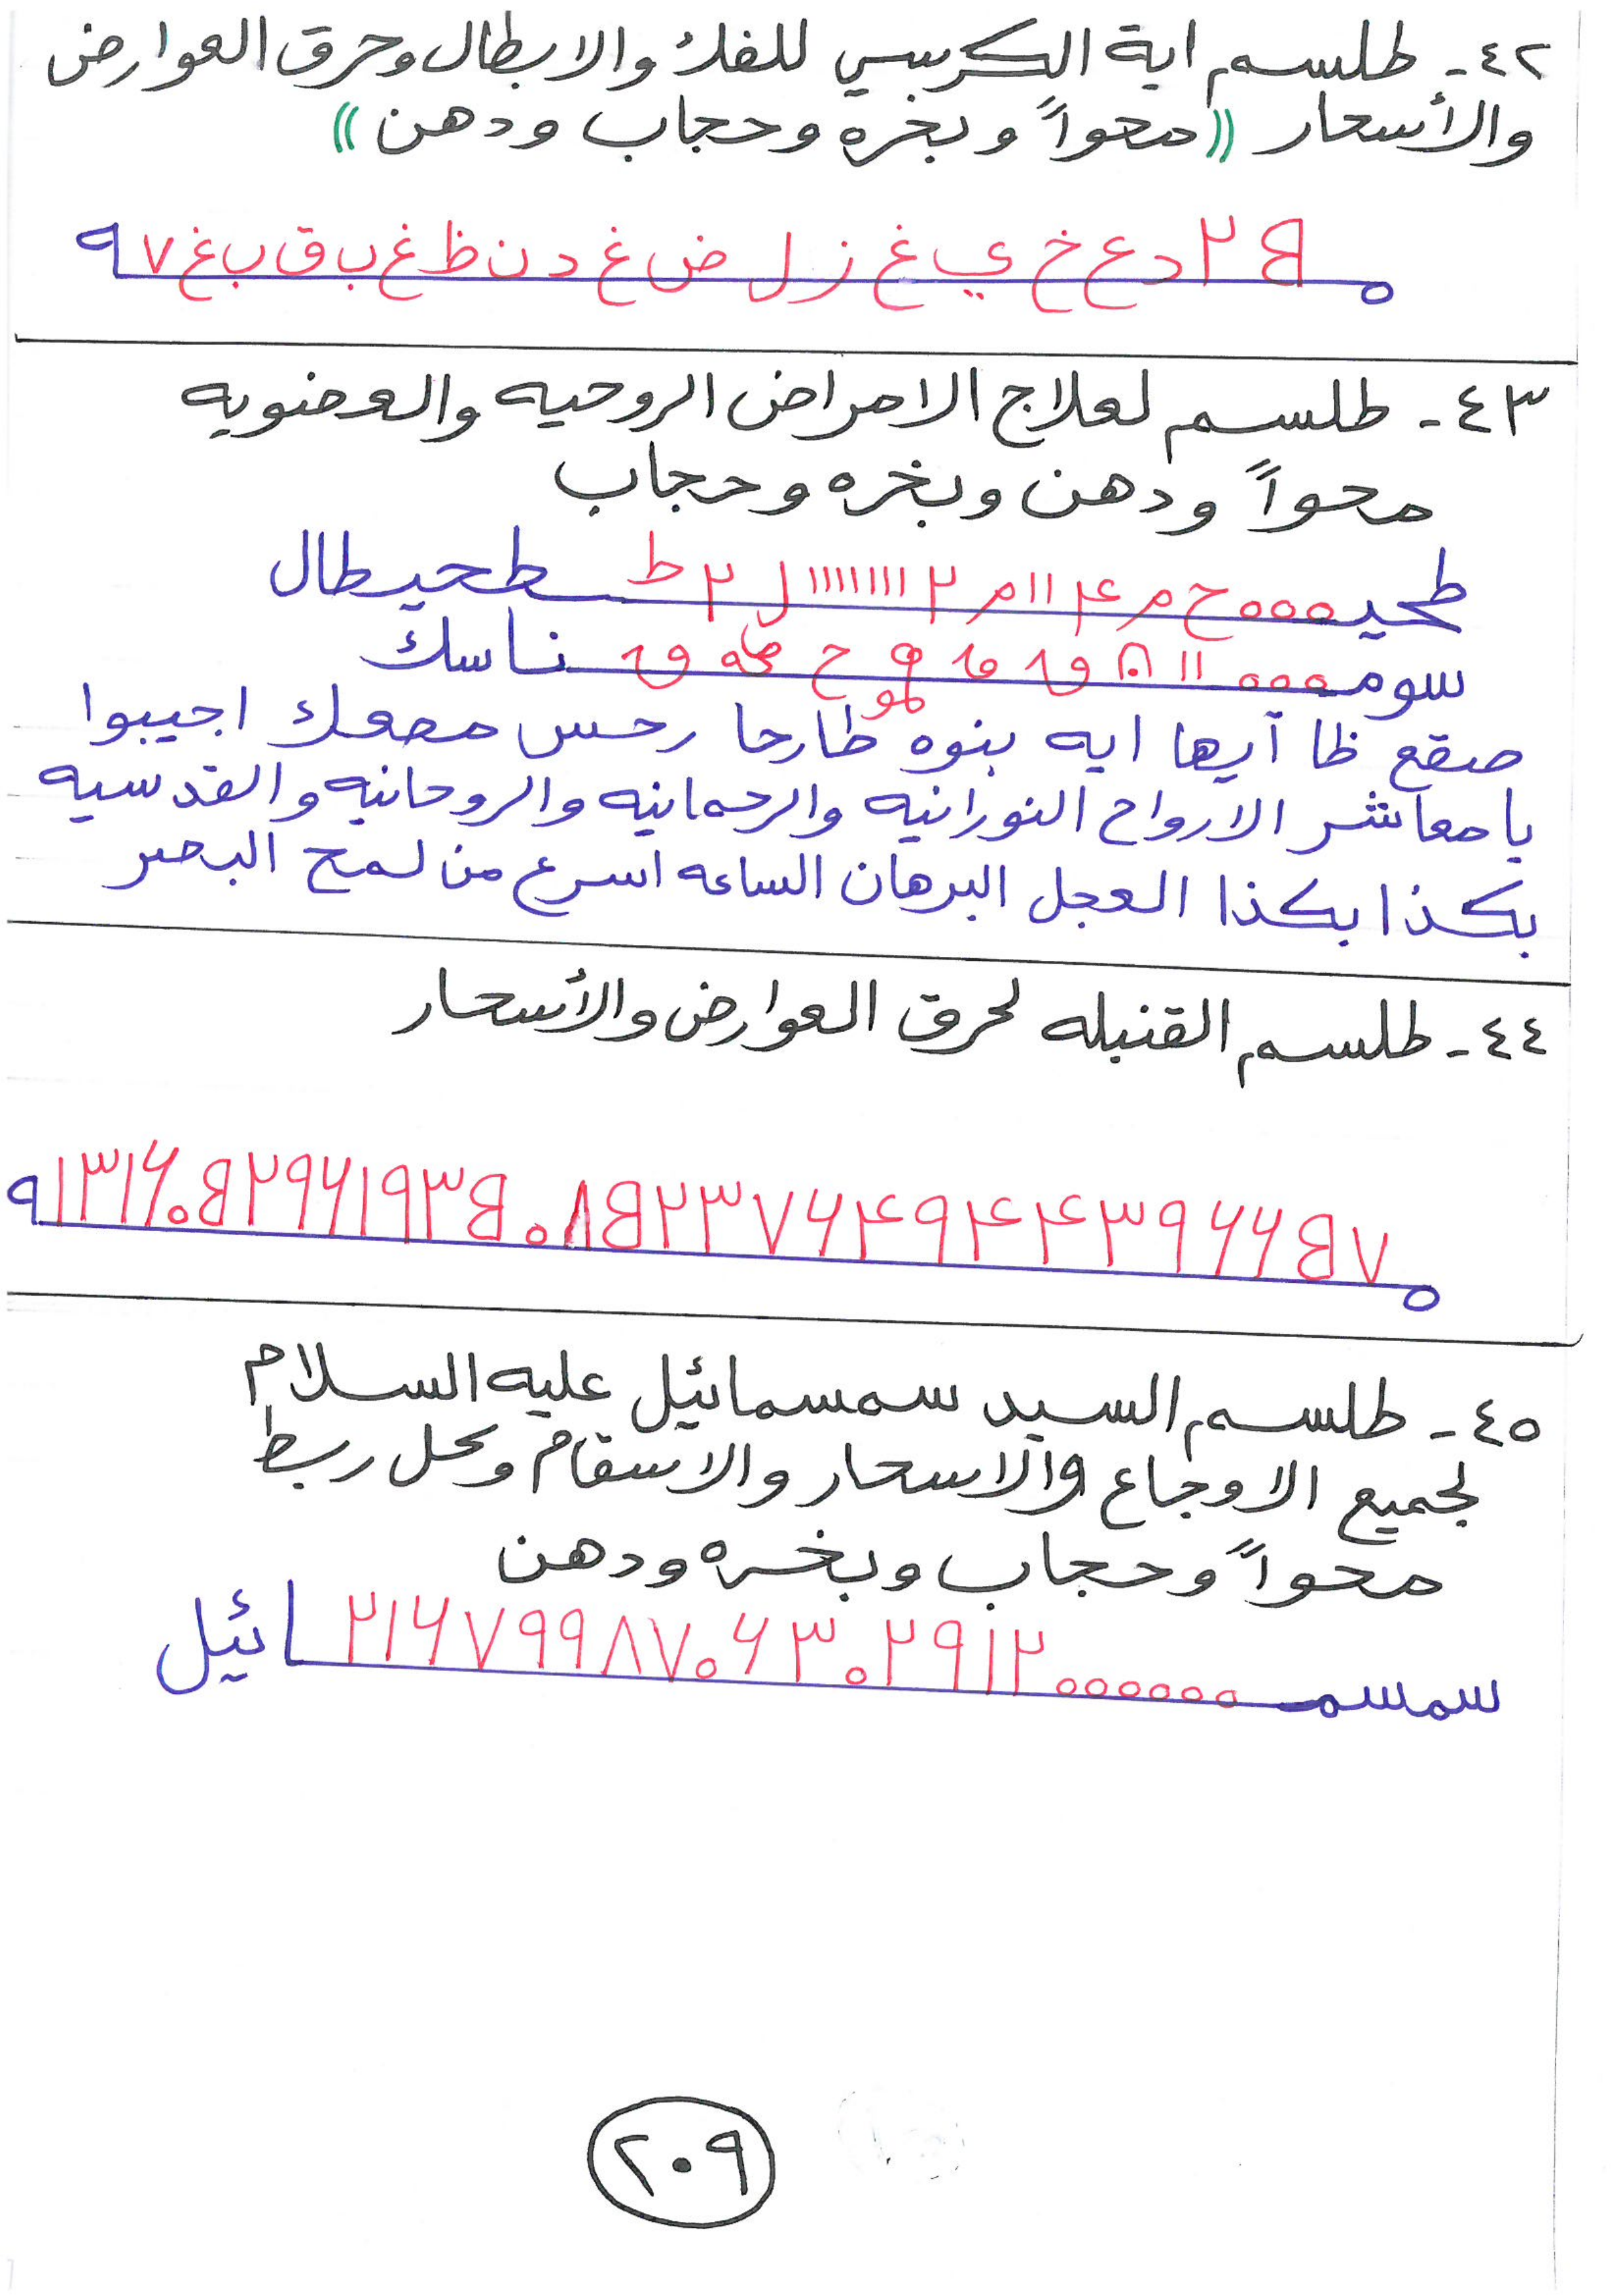 ٤٢ـ طلسم اية الكرسي للفك والابطال وحرق العوارض
والأسحار ((محواً وبخره وحجاب ودهن))
٢ د ع خ ي غ ز ل ض غ د ن ظ غ ب ق ب غ ٧ ٩
٤٣ـ طلسم لعلاج الامراض الروحيه والعضويه
محواً ودهن وبخره وحجاب
طحيـ ٥٥٥ ح م ۴ ١١ م ٢ ١١١١١١١١ ل ٢ ط طحيطال
سومـ ٥٥٥ ١١ ناسك
صقع ظا آيها ايه بنوه طارحا رحس معمك اجيبوا
يامعاشر الارواح النورانيه والرحمانيه والروحانيه والقدسيه
بكذا بكذا العجل البرهان الساعه اسرع من لمح البصر
٤٤ـ طلسم القنبله لحرق العوارض والأسحار
٧B۶۶٩٣۴۴٩۴۶٧٣٢B٨٠B٣٩١۶٩٢B٠۶١٣١٩
٤٥ـ طلسم السيد سمسمائيل عليه السلام
لجميع الاوجاع والاسحار والاسقام وحل ربط
محواً وحجاب وبخره ودهن
سمسمـ ٥٥٥٥٥٥ ٢١۶٧٩٩٨٧٠۶٣٠٢٩١٢ ـائيل
٢٠٩